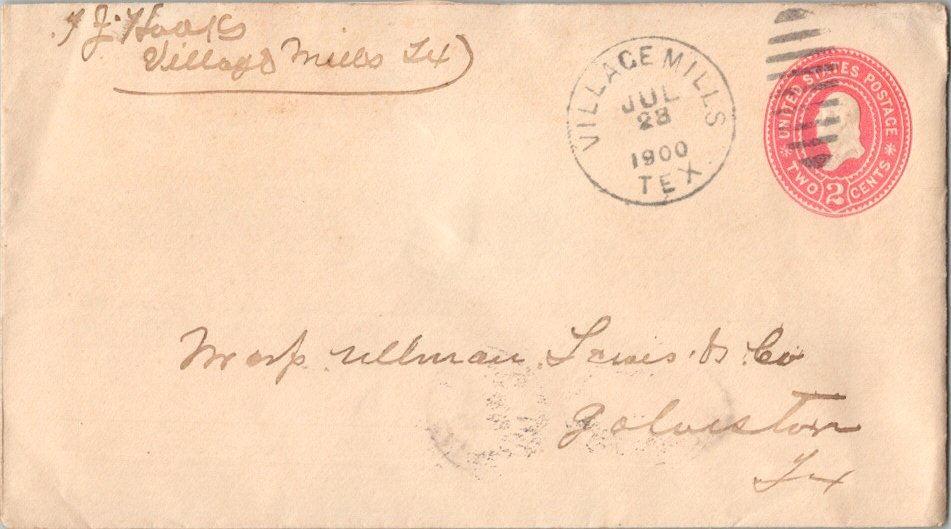 J. Hooks
Village Mills Tx
VILLAGE MILLS
JUL
28
1900
TEX
UNITED STATES POSTAGE
TWO 2 CENTS
Ullman Lewis & Co
Galveston
Tx